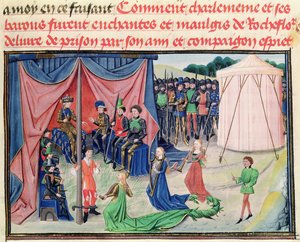 amoy en ce faisant Comment charlemene et ses
barons furent enchantes et maulgis de Rocheflo
deliure de prison par son amy et compaignon espiet